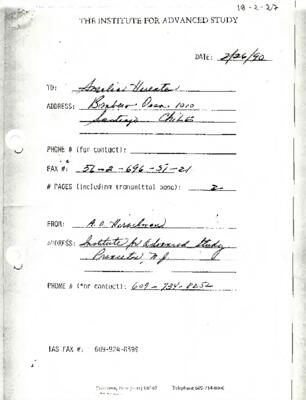 18-2-227
THE INSTITUTE FOR ADVANCED STUDY
DATE: 2/26/90
TO:
ADDRESS: 1010
Santiago Chile
PHONE # (for contact):
FAX #: 56-2-696-37-21
# PAGES (including transmittal page): 2
FROM: A. O. Hirschman
ADDRESS: Institute for Advanced Study
Princeton, N.J.
PHONE # (for contact): 609-734-8252
IAS FAX #: 609-924-8399
Princeton, New Jersey 08540 Telephone 609-734-8000